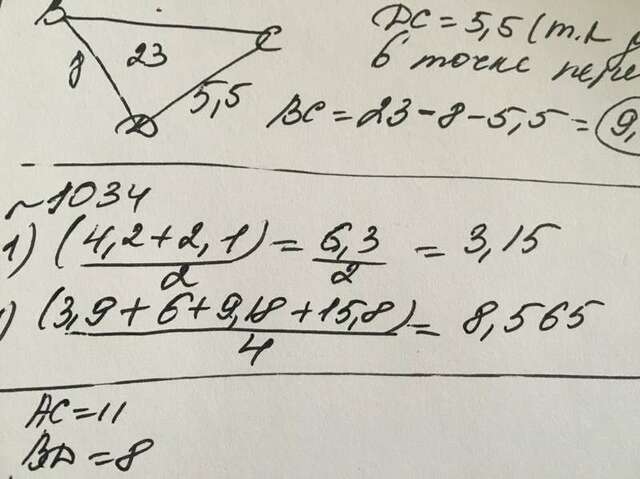 B
C
8
23
5,5
D
DC = 5,5 (т.к
в точке
BC = 23 - 8 - 5,5 = 9,
~1034
1) (4,2 + 2,1)/2 = 6,3/2 = 3,15
) (3,9 + 6 + 9,18 + 15,8)/4 = 8,565
AC = 11
BD = 8